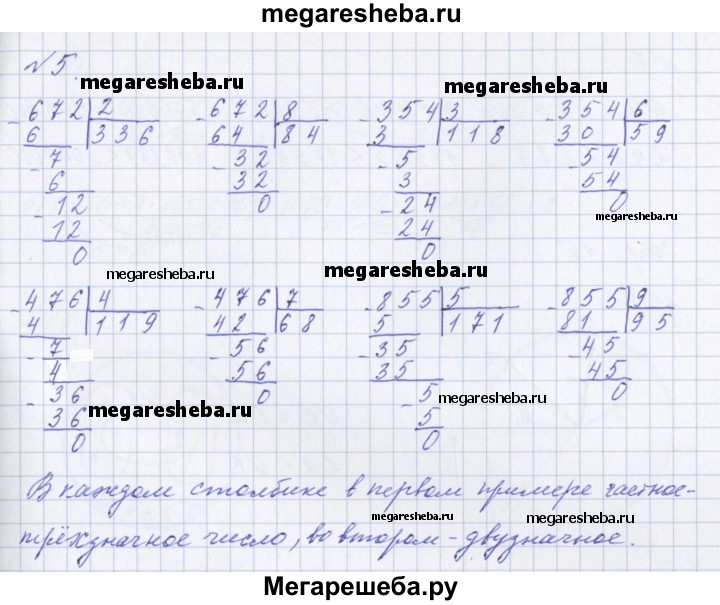 megaresheba.ru
№5.
megaresheba.ru
megaresheba.ru
672|2 672|8 354|3 354|6
6 336 64 84 3 118 30 59
7 32 5 54
6 32 3 54
12 0 24 0
12 24
0 0
megaresheba.ru
megaresheba.ru
megaresheba.ru
476|4 476|7 855|5 855|9
4 119 42 68 5 171 81 95
7 56 35 45
4 56 35 45
36 0 5 0
36 5
0 0
megaresheba.ru
megaresheba.ru
В каждом столбике в первом примере частное-
трёхзначное число, во втором - двузначное.
megaresheba.ru
megaresheba.ru
Мегарешеба.ру